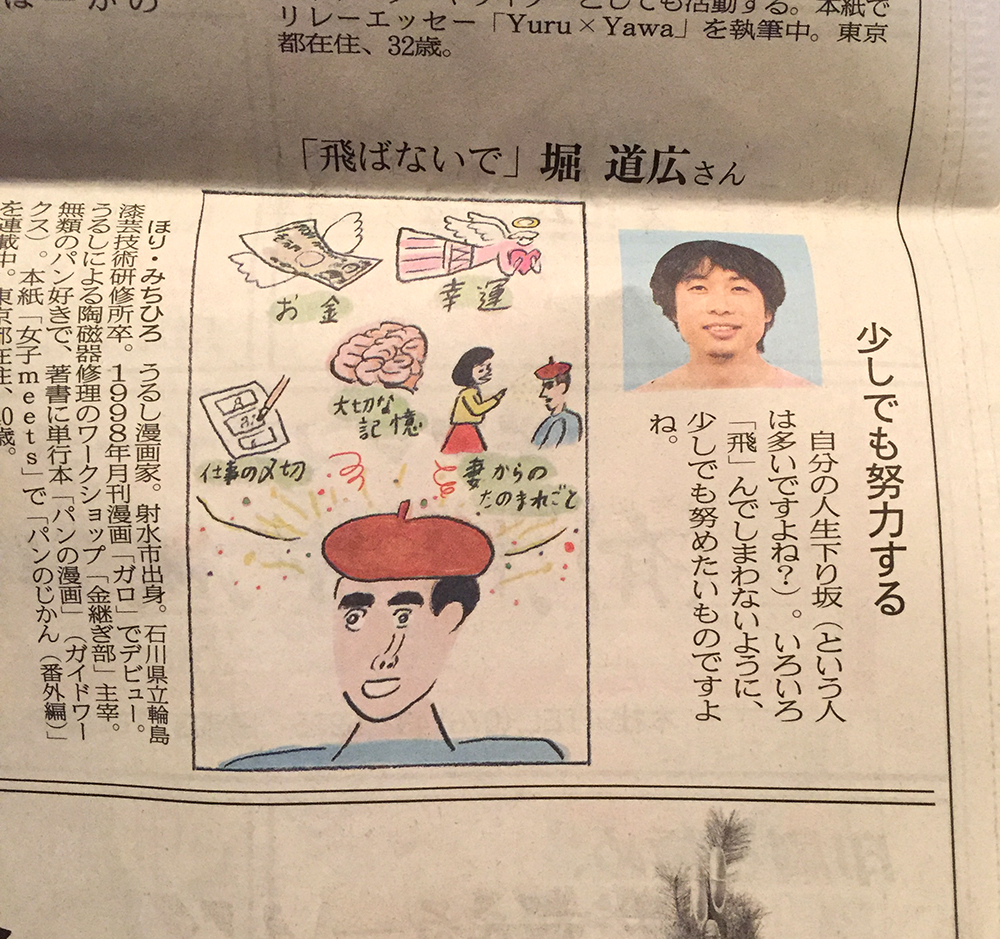 としても活動する。本紙で
リレーエッセー「Yuru×Yawa」を執筆中。東京
都在住、32歳。
「飛ばないで」堀 道広さん
少しでも努力する
自分の人生下り坂（という人
は多いですよね？）。いろいろ
「飛」んでしまわないように、
少しでも努めたいものですよ
ね。
お金
幸運
大切な
記憶
仕事の〆切
妻からの
たのまれごと
ほり・みちひろ　うるし漫画家。射水市出身。石川県立輪島
漆芸技術研修所卒。1998年月刊漫画「ガロ」でデビュー。
うるしによる陶磁器修理のワークショップ「金継ぎ部」主宰。
無類のパン好きで、著書に単行本「パンの漫画」（ガイドワー
クス）。本紙「女子meets」で「パンのじかん（番外編）」
を連載中。東京都在住、40歳。